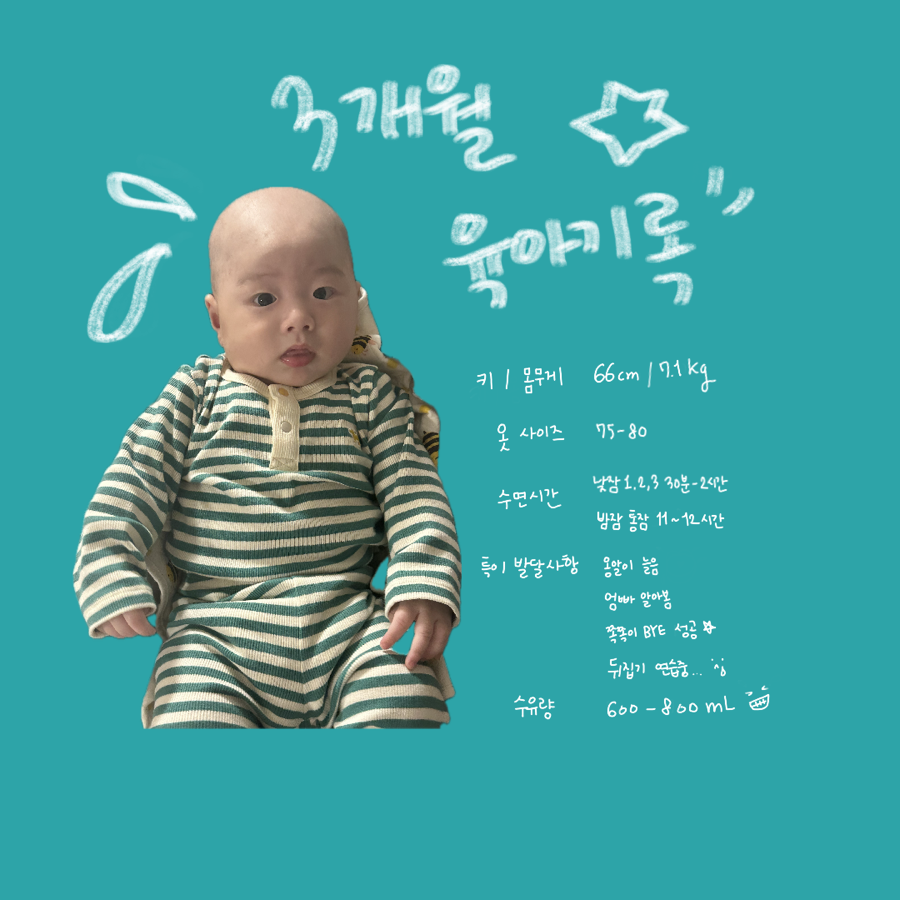 3개월
육아기록
키 / 몸무게 66cm / 7.1kg
옷 사이즈 75-80
수면시간 낮잠 1,2,3 30분-2시간
밤잠 통잠 11~12시간
특이 발달사항 옹알이 늘음
엄빠 알아봄
쪽쪽이 BYE 성공
뒤집기 연습중...
수유량 600-800mL